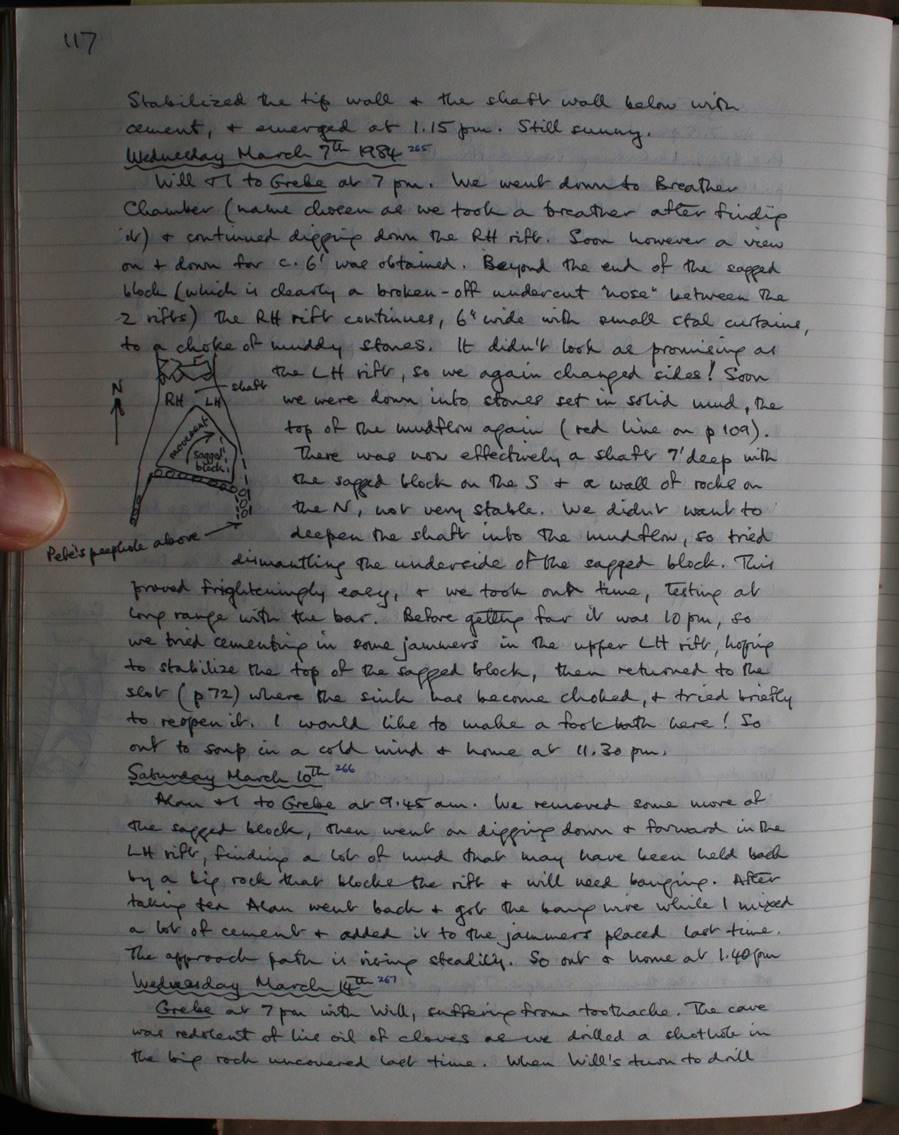 117
Stabilized the tip wall & the shaft wall below with
cement, & emerged at 1.15 pm. Still sunny.
Wednesday March 7th 1984 265
Will & I to Grebe at 7 pm. We went down to Breather
Chamber (name chosen as we took a breather after finding
it) & continued digging down the RH rift. Soon however a view
on & down for c. 6' was obtained. Beyond the end of the sagged
block (which is clearly a broken-off undercut "nose" between the
2 rifts) the RH rift continues, 6" wide with small stal curtains,
to a choke of muddy stones. It didn't look as promising as
the LH rift, so we again changed sides! Soon
we were down into stones set in solid mud, the
top of the mudflow again (red line on p 109).
There was now effectively a shaft 7' deep with
the sagged block on the S & a wall of rocks on
the N, not very stable. We didn't want to
deepen the shaft into the mudflow, so tried
dismantling the underside of the sagged block. This
proved frighteningly easy, & we took our time, testing at
long range with the bar. Before getting far it was 10 pm, so
we tried cementing in some jammers in the upper LH rift, hoping
to stabilize the top of the sagged block, then returned to the
slot (p 72) where the sink has become choked, & tried briefly
to reopen it. I would like to make a footbath here! So
out to soup in a cold wind & home at 11.30 pm.
N
shaft
RH LH
movement
sagged
block
Pete's peephole above
Saturday March 10th 266
Alan & I to Grebe at 9.45 am. We removed some more of
the sagged block, then went on digging down & forward in the
LH rift, finding a lot of mud that may have been held back
by a big rock that blocks the rift & will need banging. After
taking tea Alan went back & got the bang wire while I mixed
a lot of cement & added it to the jammers placed last time.
The approach path is rising steadily. So out & home at 1.40 pm
Wednesday March 14th 267
Grebe at 7 pm with Will, suffering from toothache. The cave
was redolent of his oil of cloves as we drilled a shothole in
the big rock uncovered last time. When Will's turn to drill